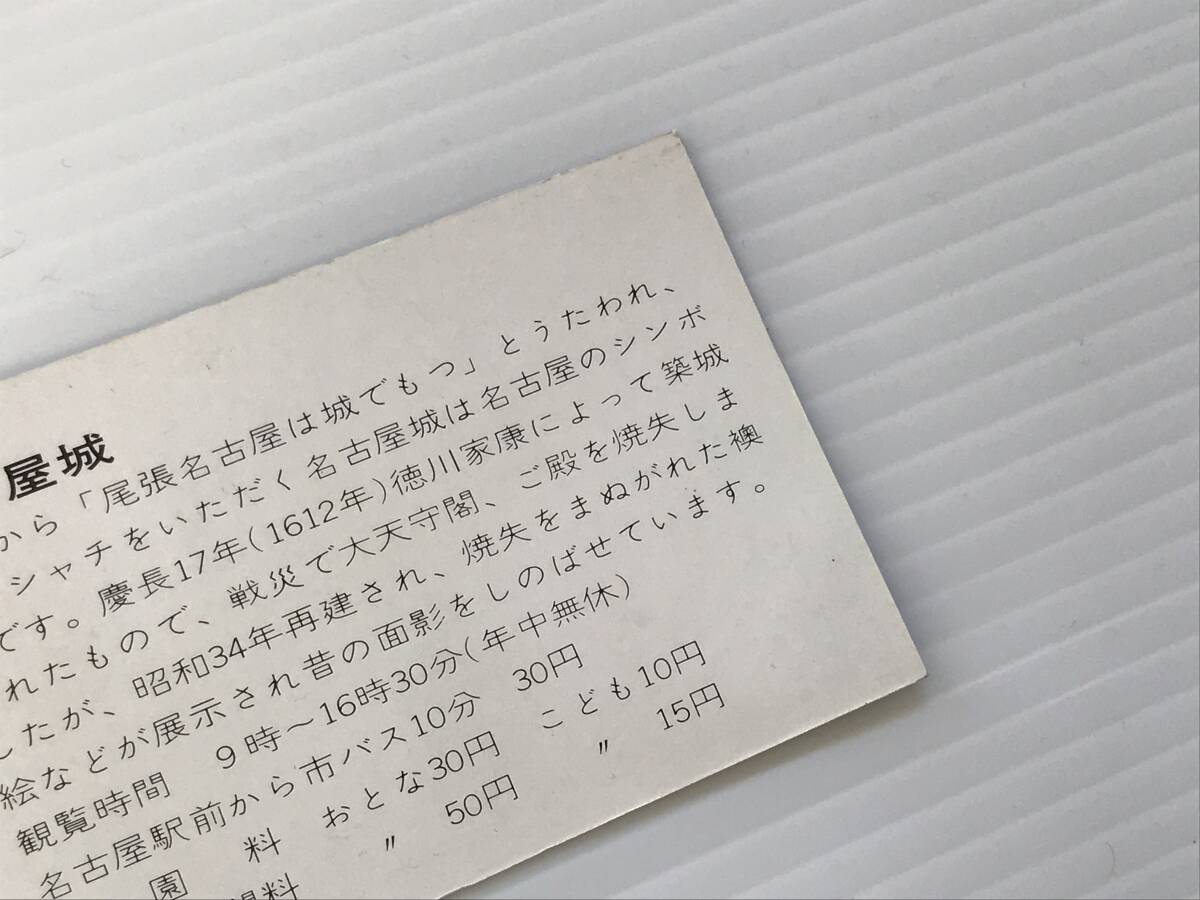 屋城
から「尾張名古屋は城でもつ」とうたわれ、
シャチをいただく名古屋城は名古屋のシンボ
です。慶長17年(1612年)徳川家康によって築城
れたもので、戦災で大天守閣、ご殿を焼失しま
したが、昭和34年再建され、焼失をまぬがれた襖
絵などが展示され昔の面影をしのばせています。
観覧時間 9時〜16時30分(年中無休)
名古屋駅前から市バス10分 30円
園 料 おとな30円 こども10円
料 〃 50円 〃 15円